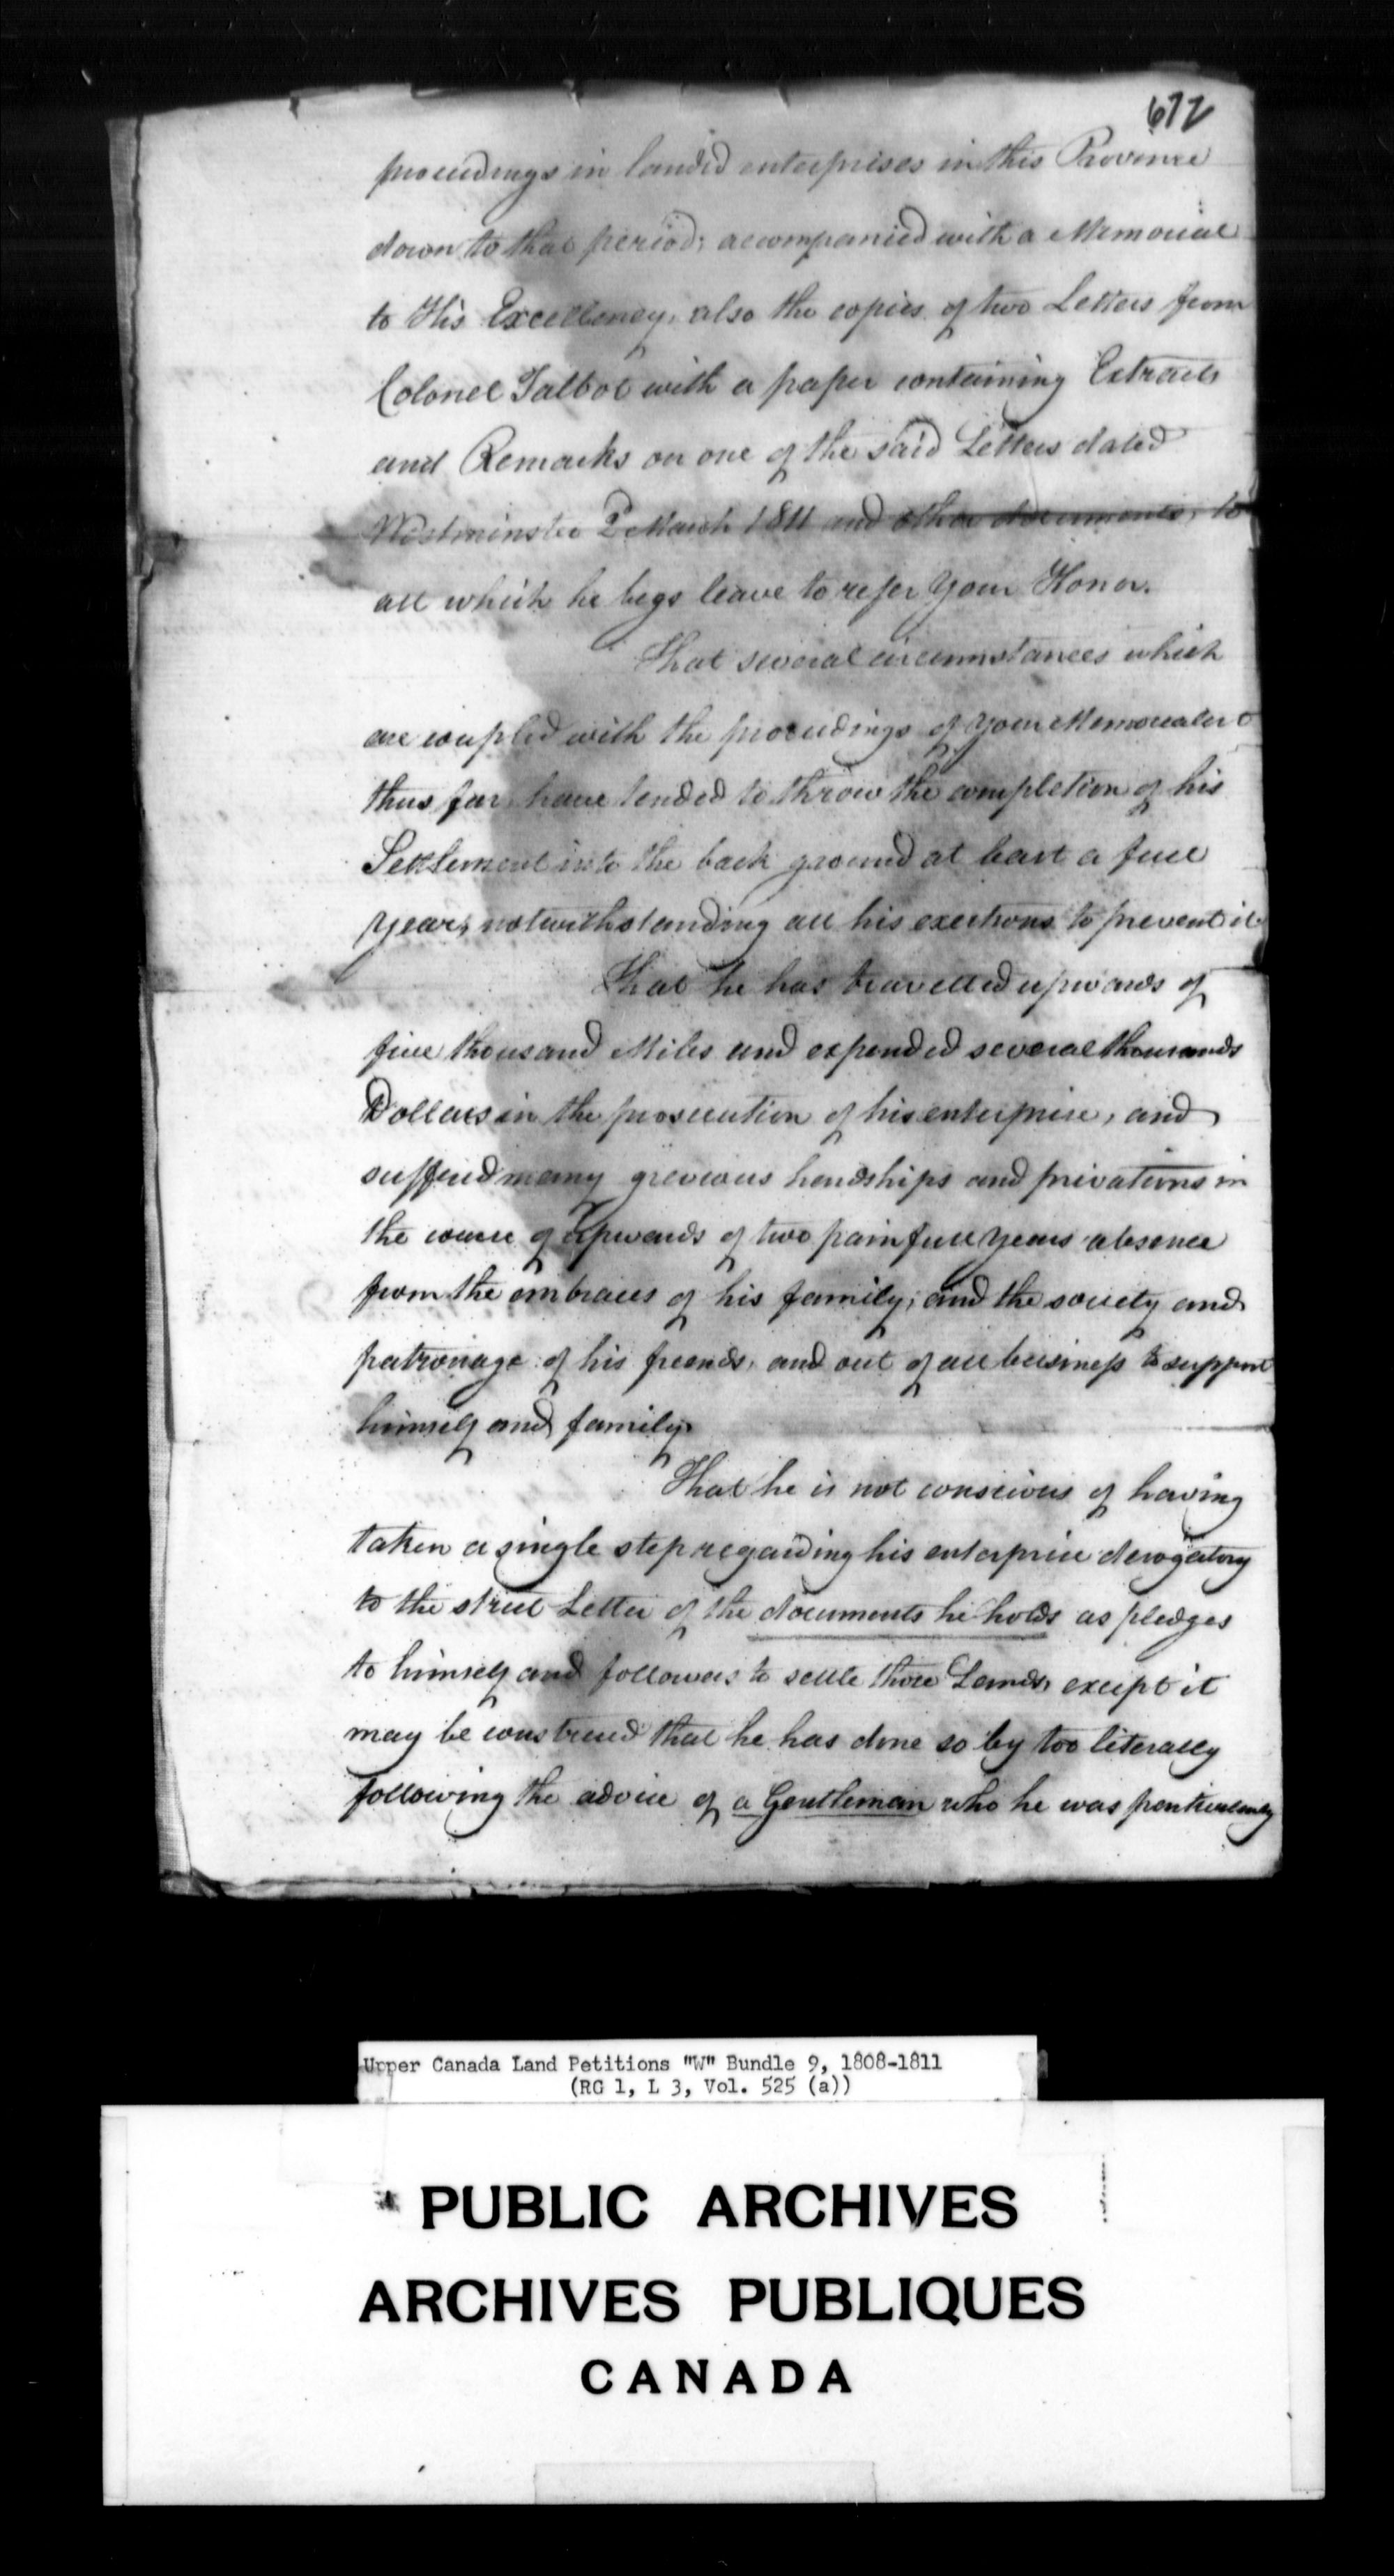 672
proceedings in landed enterprises in this Province
down to that period; accompanied with a Memorial
to His Excellency, also the copies of two Letters from
Colonel Talbot with a paper containing Extracts
and Remarks on one of the said Letters dated
Westminster 2 March 1811 and other documents, to
all which he begs leave to refer Your Honor.
That several circumstances which
are coupled with the proceedings of Your Memorialist
thus far have tended to throw the completion of his
Settlement into the back ground at least a full
year, notwithstanding all his exertions to prevent it
That he has travelled upwards of
five thousand Miles and expended several thousands
Dollars in the prosecution of his enterprise, and
suffered many grevious hardships and privations in
the course of upwards of two painfull years absence
from the embraces of his family; and the society and
patronage of his friends, and out of all business to support
himself and family.
That he is not conscious of having
taken a single step regarding his enterprise derogatory
to the strict Letter of the documents he holds as pledges
to himself and followers to settle those Lands, except it
may be construed that he has done so by too literally
following the advice of a Gentleman who he was particularly
Upper Canada Land Petitions "W" Bundle 9, 1808-1811
(RG 1, L 3, Vol. 525 (a))
PUBLIC ARCHIVES
ARCHIVES PUBLIQUES
CANADA